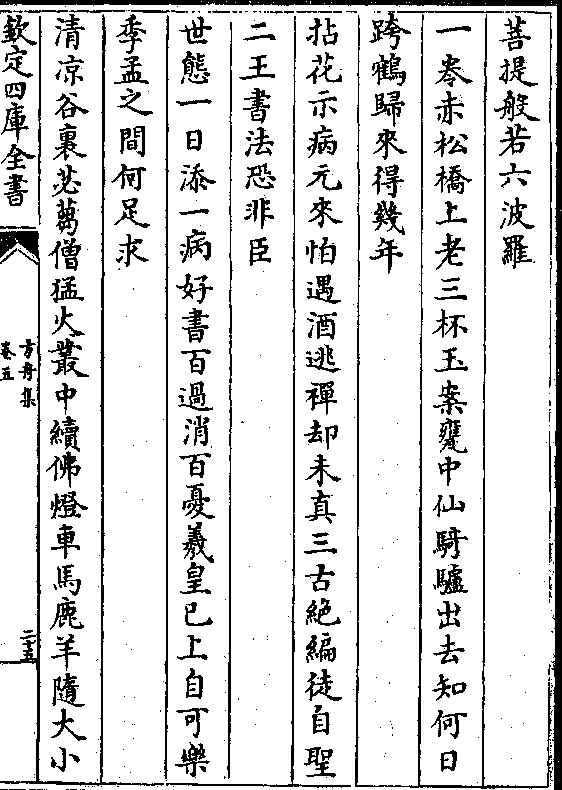 菩提般若六波羅
一㟁赤松橋上老三杯玉案甕中仙騎驢出去知何日
跨鶴歸來得幾年
拈花示病元來怕遇酒逃禪却未真三古絶編徒自聖
二王書法恐非臣
世態一日添一病好書百過消百憂羲皇已上自可樂
季孟之間何足求
清凉谷裏苾蒭僧猛火叢中續佛燈車馬鹿羊隨大小
欽定四庫全書
方舟集
卷五
二十五